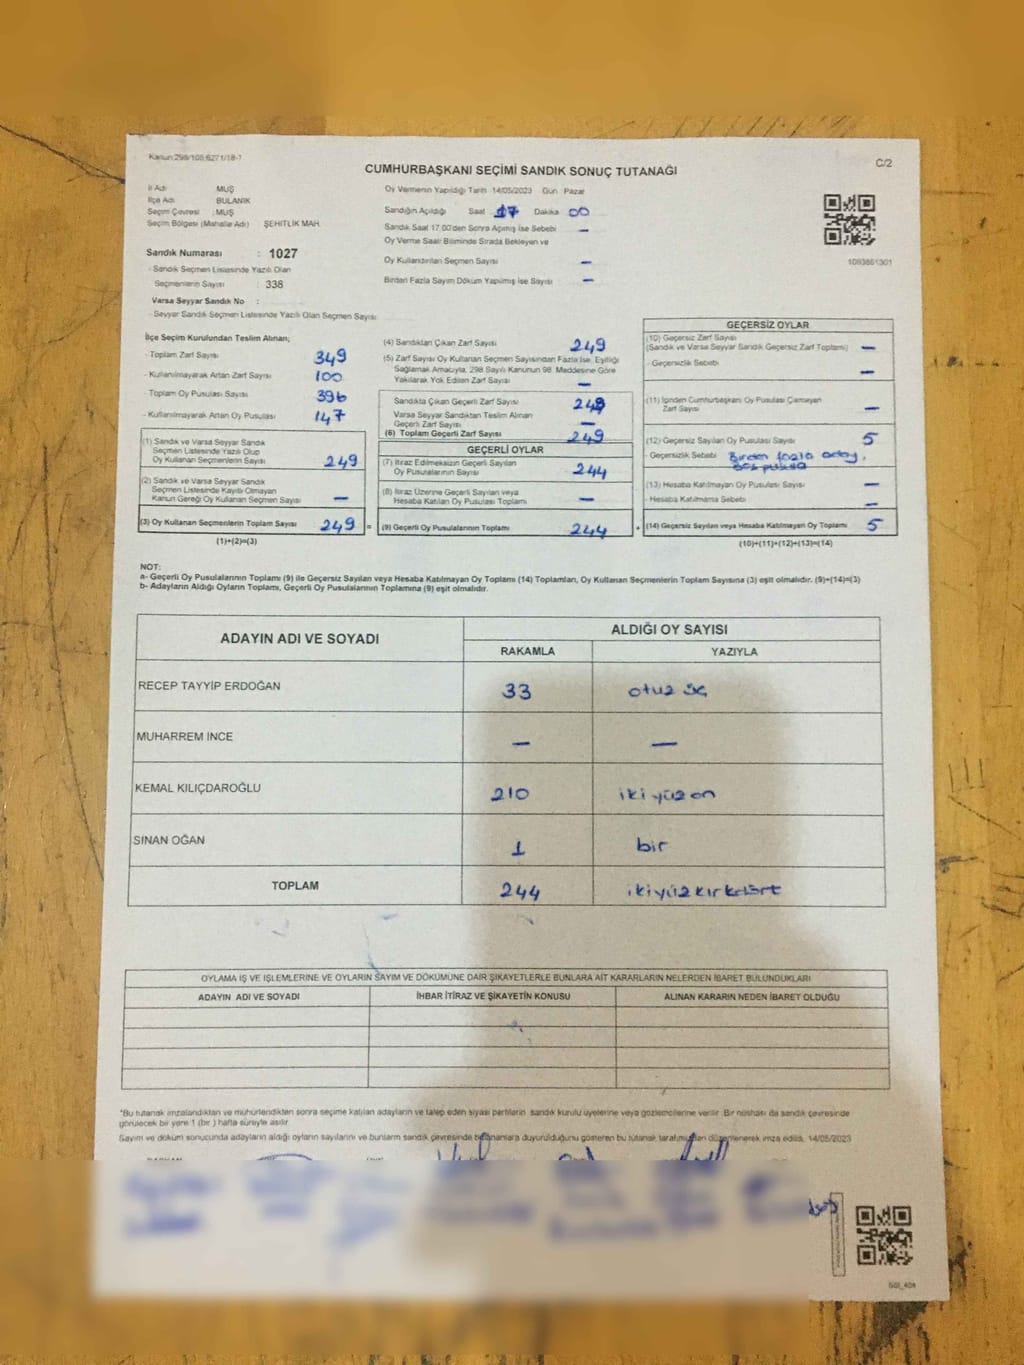 Kanun:298/105;6271/18-7
C/2
CUMHURBAŞKANI SEÇİMİ SANDIK SONUÇ TUTANAĞI
İl Adı : MUŞ
İlçe Adı : BULANIK
Seçim Çevresi : MUŞ
Seçim Bölgesi (Mahalle Adı) ŞEHİTLİK MAH.
Sandık Numarası : 1027
- Sandık Seçmen Listesinde Yazılı Olan
Seçmenlerin Sayısı : 338
Varsa Seyyar Sandık No :
- Seyyar Sandık Seçmen Listesinde Yazılı Olan Seçmen Sayısı
Oy Vermenin Yapıldığı Tarih 14/05/2023 Gün Pazar
Sandığın Açıldığı Saat 17 Dakika 00
Sandık Saat 17.00'den Sonra Açılmış İse Sebebi —
Oy Verme Saati Bitiminde Sırada Bekleyen ve
Oy Kullandırılan Seçmen Sayısı —
Birden Fazla Sayım Döküm Yapılmış İse Sayısı —
1093861301
İlçe Seçim Kurulundan Teslim Alınan;
- Toplam Zarf Sayısı 349
- Kullanılmayarak Artan Zarf Sayısı 100
- Toplam Oy Pusulası Sayısı 396
- Kullanılmayarak Artan Oy Pusulası 147
(1) Sandık ve Varsa Seyyar Sandık
Seçmen Listesinde Yazılı Olup
Oy Kullanan Seçmenlerin Sayısı 249
(2) Sandık ve Varsa Seyyar Sandık
Seçmen Listesinde Kayıtlı Olmayan
Kanun Gereği Oy Kullanan Seçmen Sayısı —
(3) Oy Kullanan Seçmenlerin Toplam Sayısı 249 =
(1)+(2)=(3)
(4) Sandıktan Çıkan Zarf Sayısı 249
(5) Zarf Sayısı Oy Kullanan Seçmen Sayısından Fazla İse, Eşitliği
Sağlamak Amacıyla, 298 Sayılı Kanunun 98. Maddesine Göre
Yakılarak Yok Edilen Zarf Sayısı —
Sandıkta Çıkan Geçerli Zarf Sayısı 249
Varsa Seyyar Sandıktan Teslim Alınan
Geçerli Zarf Sayısı —
(6) Toplam Geçerli Zarf Sayısı 249
GEÇERLİ OYLAR
(7) İtiraz Edilmeksizin Geçerli Sayılan
Oy Pusulalarının Sayısı 244
(8) İtiraz Üzerine Geçerli Sayılan veya
Hesaba Katılan Oy Pusulası Toplamı —
(9) Geçerli Oy Pusulalarının Toplamı 244 +
GEÇERSİZ OYLAR
(10) Geçersiz Zarf Sayısı
(Sandık ve Varsa Seyyar Sandık Geçersiz Zarf Toplamı) —
- Geçersizlik Sebebi —
(11) İçinden Cumhurbaşkanı Oy Pusulası Çıkmayan
Zarf Sayısı —
(12) Geçersiz Sayılan Oy Pusulası Sayısı 5
- Geçersizlik Sebebi Birden fazla aday,
boş pusula
(13) Hesaba Katılmayan Oy Pusulası Sayısı —
- Hesaba Katılmama Sebebi —
(14) Geçersiz Sayılan veya Hesaba Katılmayan Oy Toplamı 5
(10)+(11)+(12)+(13)=(14)
NOT:
a- Geçerli Oy Pusulalarının Toplamı (9) ile Geçersiz Sayılan veya Hesaba Katılmayan Oy Toplamı (14) Toplamları, Oy Kullanan Seçmenlerin Toplam Sayısına (3) eşit olmalıdır. (9)+(14)=(3)
b- Adayların Aldığı Oyların Toplamı, Geçerli Oy Pusulalarının Toplamına (9) eşit olmalıdır.
ADAYIN ADI VE SOYADI ALDIĞI OY SAYISI
RAKAMLA YAZIYLA
RECEP TAYYİP ERDOĞAN 33 otuz üç
MUHARREM İNCE — —
KEMAL KILIÇDAROĞLU 210 iki yüz on
SİNAN OĞAN 1 bir
TOPLAM 244 ikiyüzkırkdört
OYLAMA İŞ VE İŞLEMLERİNE VE OYLARIN SAYIM VE DÖKÜMÜNE DAİR ŞİKAYETLERLE BUNLARA AİT KARARLARIN NELERDEN İBARET BULUNDUKLARI
ADAYIN ADI VE SOYADI İHBAR İTİRAZ VE ŞİKAYETİN KONUSU ALINAN KARARIN NEDEN İBARET OLDUĞU
*Bu tutanak imzalandıktan ve mühürlendikten sonra seçime katılan adayların ve talep eden siyasi partilerin sandık kurulu üyelerine veya gözlemcilerine verilir. Bir nüshası da sandık çevresinde
görülecek bir yere 1 (bir ) hafta süreyle asılır.
Sayım ve döküm sonucunda adayların aldığı oyların sayılarını ve bunların sandık çevresinde bulunanlara duyurulduğunu gösteren bu tutanak tarafımızdan düzenlenerek imza edildi. 14/05/2023